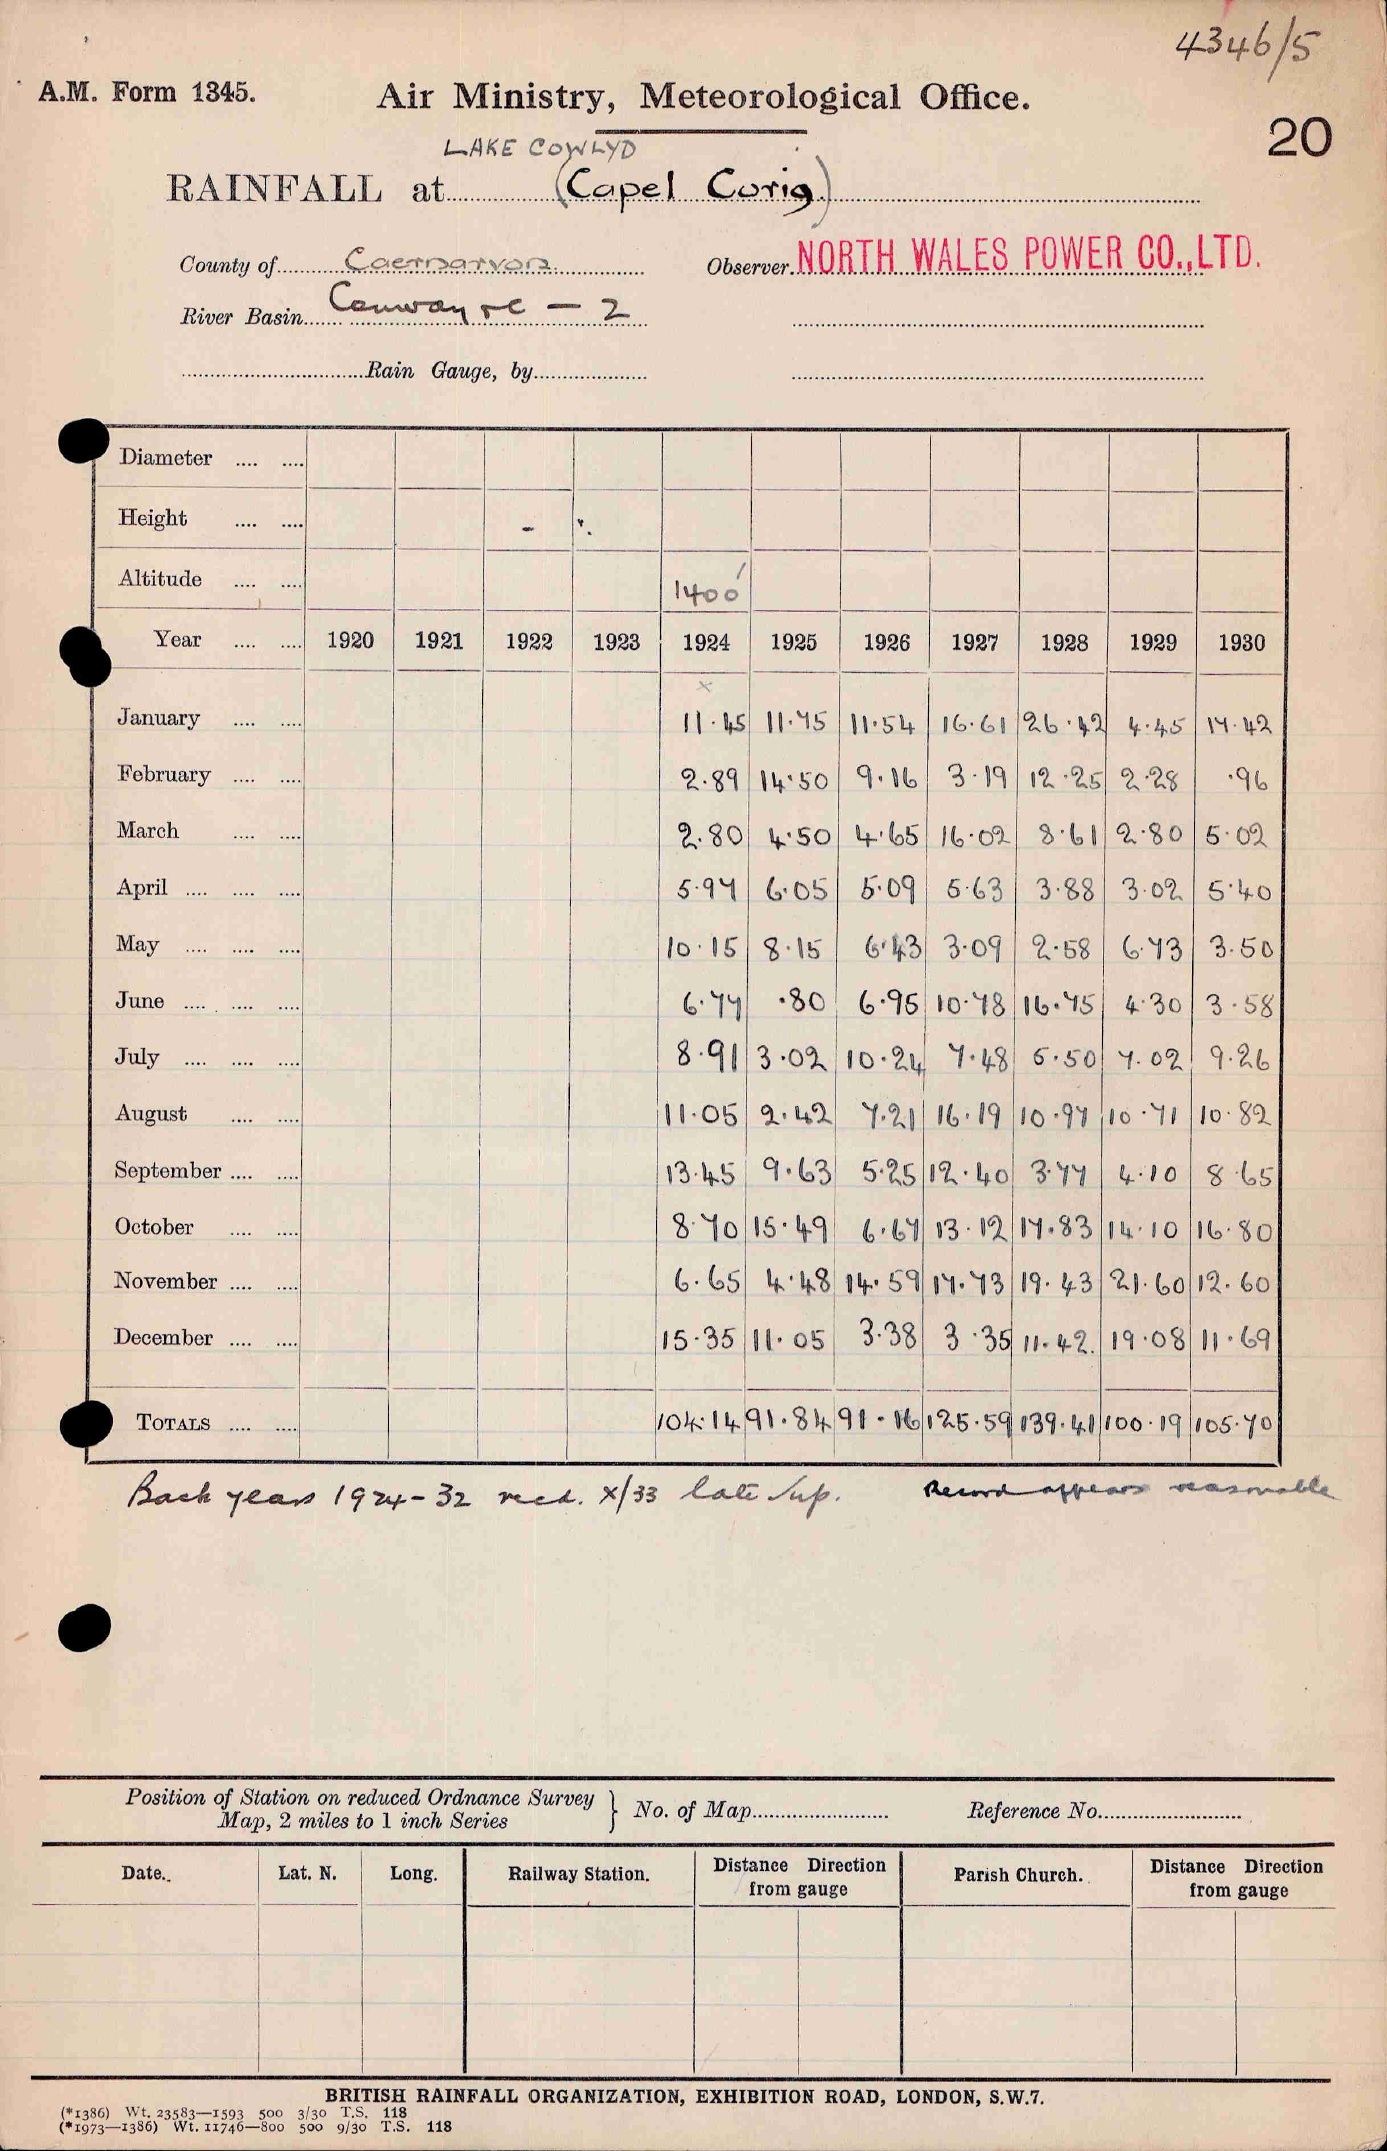 4346/5
A.M. Form 1345.
Air Ministry, Meteorological Office.
20
LAKE COWLYD
RAINFALL at (Capel Curig)
County of Caernarvon Observer NORTH WALES POWER CO., LTD.
River Basin Conway &c — 2
Rain Gauge, by
Diameter
Height
Altitude 1400'
Year 1920 1921 1922 1923 1924 1925 1926 1927 1928 1929 1930
x
January 11.45 11.75 11.54 16.61 26.42 4.45 17.42
February 2.89 14.50 9.16 3.19 12.25 2.28 .96
March 2.80 4.50 4.65 16.02 8.61 2.80 5.02
April 5.97 6.05 5.09 5.63 3.88 3.02 5.40
May 10.15 8.15 6.43 3.09 2.58 6.73 3.50
June 6.77 .80 6.95 10.78 16.75 4.30 3.58
July 8.91 3.02 10.24 7.48 5.50 7.02 9.26
August 11.05 2.42 7.21 16.19 10.97 10.71 10.82
September 13.45 9.63 5.25 12.40 3.77 4.10 8.65
October 8.70 15.49 6.67 13.12 17.83 14.10 16.80
November 6.65 4.48 14.59 17.73 19.43 21.60 12.60
December 15.35 11.05 3.38 3.35 11.42. 19.08 11.69
TOTALS 104.14 91.84 91.16 125.59 139.41 100.19 105.70
Back years 1924-32 recd. X/33 late Sup. Record appears reasonable
Position of Station on reduced Ordnance Survey
Map, 2 miles to 1 inch Series } No. of Map Reference No.
Date. Lat. N. Long. Railway Station. Distance Direction from gauge Parish Church. Distance Direction from gauge
BRITISH RAINFALL ORGANIZATION, EXHIBITION ROAD, LONDON, S.W.7.
(*1386) Wt. 23583—1593 500 3/30 T.S. 118
(*1973—1386) Wt. 11746—800 500 9/30 T.S. 118